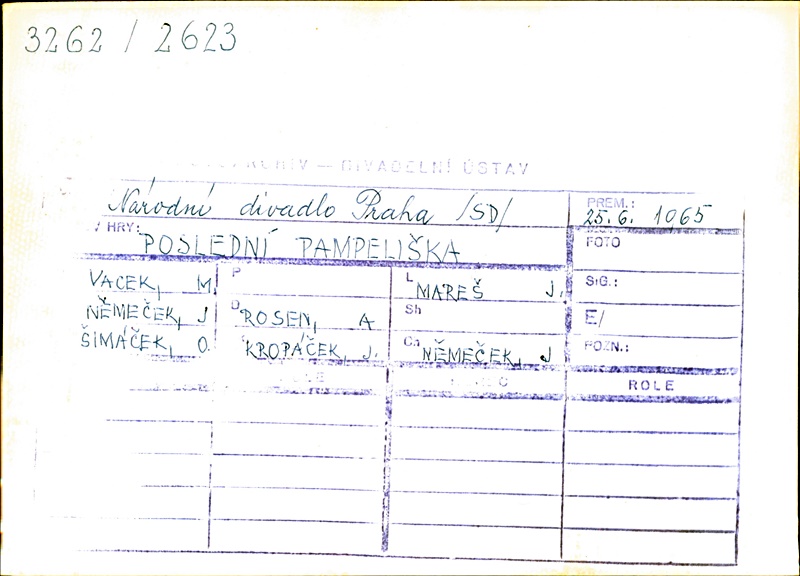 3262 / 2623
DIVADELNÍ ÚSTAV
Národní divadlo Praha /SD/
PREM.:
25.6. 1965
HRY:
POSLEDNÍ PAMPELIŠKA
FOTO
VACEK, M.
P
L
MAREŠ J.
SIG.:
NĚMEČEK, J
D
ROSEN, A
Sh
E/
ŠIMÁČEK, O.
KROPÁČEK, J.
Ch
NĚMEČEK, J
POZN.:
ROLE